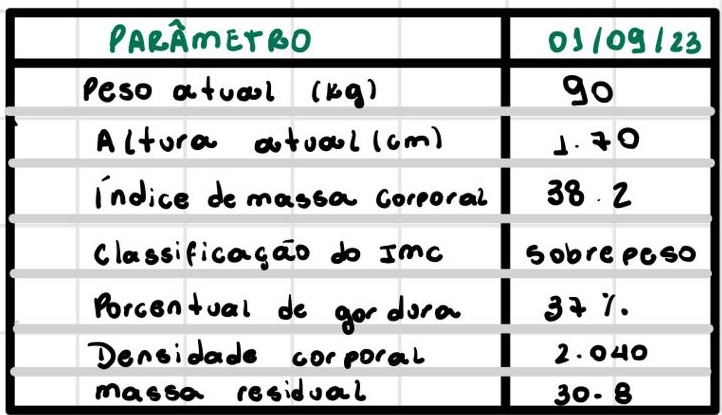 PARÂMETRO 01/09/23
Peso atual (kg) 90
Altura atual (cm) 1.70
índice de massa corporal 38.2
Classificação do IMC Sobrepeso
Porcentual de gordura 37 %.
Densidade corporal 2.040
massa residual 30.8